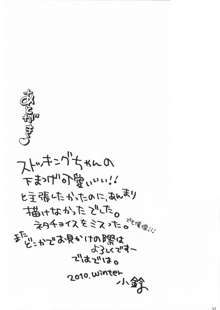 あとがき
ストッキングちゃんの
下まつげ可愛いい!!
と主張したかったのに、あんまり
描けなかったでした。
ネタチョイスをミスった。
また
どこかでお見かけの際は
よろしくです〜
ではでは〜
2010.winter
小鈴